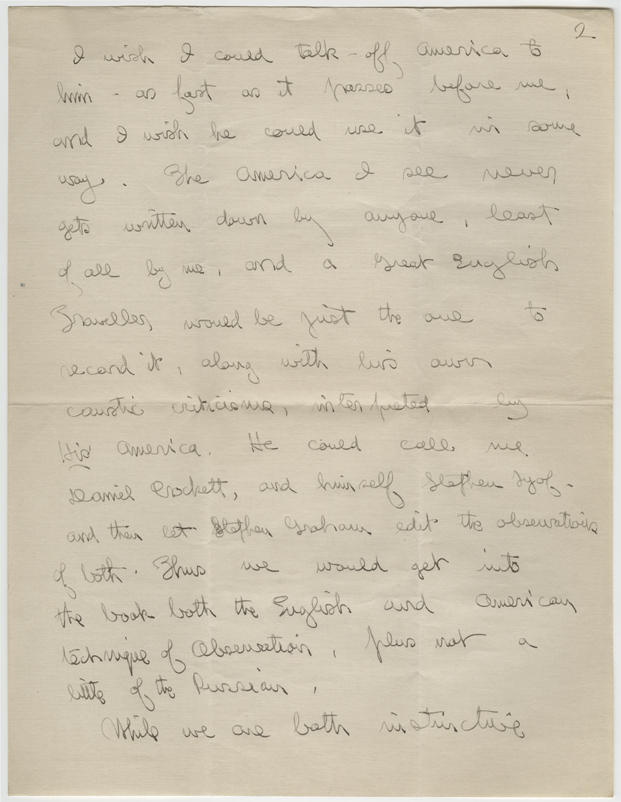 2
I wish I could talk-off America to
him - as fast as it passes before me,
and I wish he could use it in some
way. The America I see never
gets written down by anyone, least
of all by me, and a Great English
Traveller, would be just the one to
record it, along with his own
caustic criticisms, interpreted by
His America. He could call me
Daniel Crockett, and himself Stephen
and then let Stephen Graham edit the observations
of both. Thus we would get into
the book both the English and American
technique of Observation, plus not a
little of the Russian,
While we are both instinctive